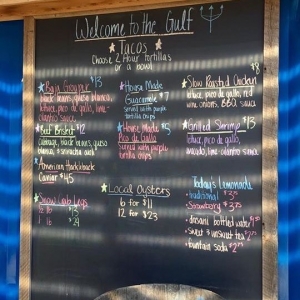 Welcome to the Gulf
Tacos
Choose 2 flour tortillas
or a bowl
Baja Grouper $13
black beans, queso blanco,
lettuce, pico de gallo, lime-
cilantro sauce
Beef Brisket $12
cabbage, black beans, queso
blanco, & sriracha aioli
American Hackleback
Caviar $45
Snow Crab Legs
$13
$24
House Made
Guacamole $7
served with purple
tortilla chips
House Made $5
Pico de Gallo
served with purple
tortilla chips
Local Oysters
6 for $11
12 for $23
Slow Roasted Chicken
lettuce, pico de gallo, red
wine onions, BBQ sauce
Grilled Shrimp $13
lettuce, pico de gallo,
avocado, lime-cilantro sauce
Today's Lemonade
traditional
strawberry
dasani bottled water
sweet & unsweet tea
fountain soda